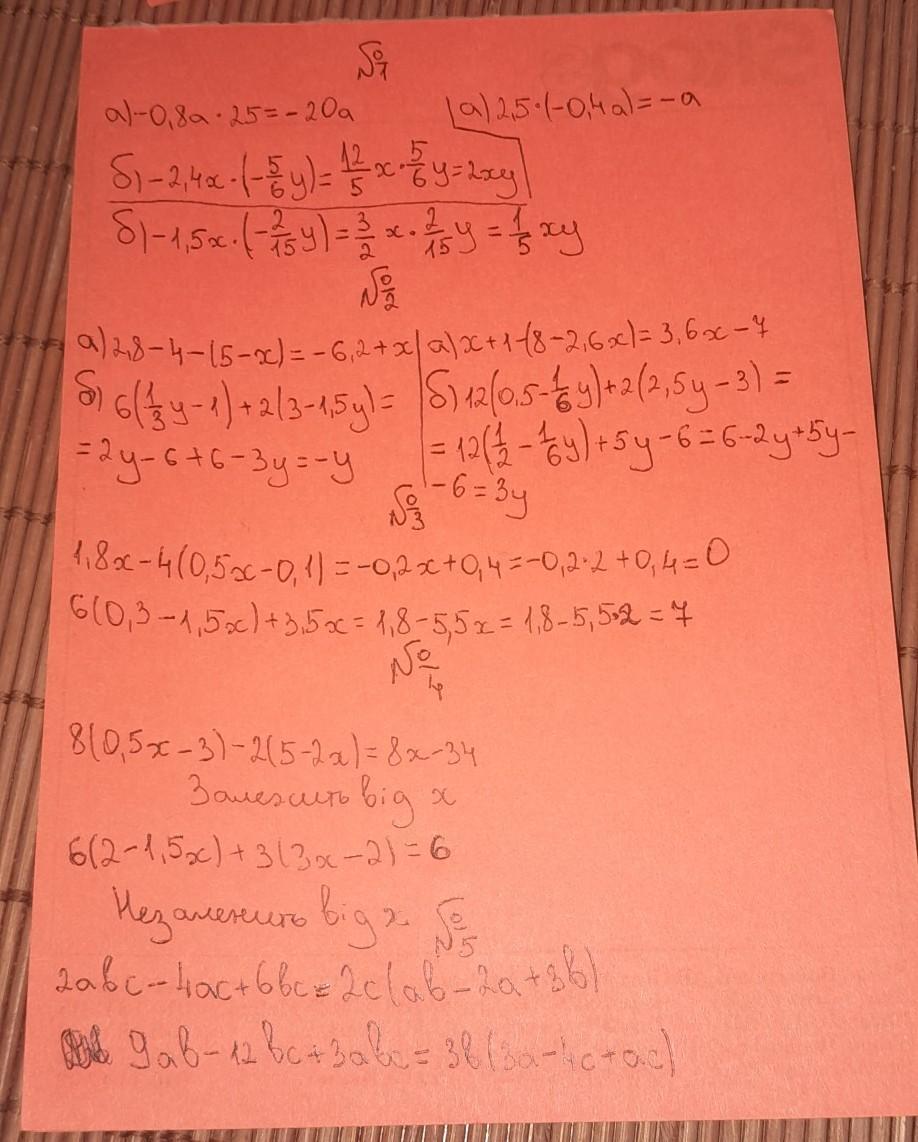 №1
а) -0,8a · 25 = -20a
а) 2,5 · (-0,4a) = -a
б) -2,4x · (-5/6 y) = 12/5 x · 5/6 y = 2xy
б) -1,5x · (-2/15 y) = 3/2 x · 2/15 y = 1/5 xy
№2
а) 2,8 - 4 - (5 - x) = -6,2 + x
б) 6(1/3 y - 1) + 2(3 - 1,5y) =
= 2y - 6 + 6 - 3y = -y
а) x + 1 - (8 - 2,6x) = 3,6x - 7
б) 12(0,5 - 1/6 y) + 2(2,5y - 3) =
= 12(1/2 - 1/6 y) + 5y - 6 = 6 - 2y + 5y -
- 6 = 3y
№3
1,8x - 4(0,5x - 0,1) = -0,2x + 0,4 = -0,2·2 + 0,4 = 0
6(0,3 - 1,5x) + 3,5x = 1,8 - 5,5x = 1,8 - 5,5·2 = 7
№4
8(0,5x - 3) - 2(5 - 2x) = 8x - 34
Залежить від x
6(2 - 1,5x) + 3(3x - 2) = 6
Незалежить від x
№5
2abc - 4ac + 6bc = 2c(ab - 2a + 3b)
9ab - 12bc + 3abc = 3b(3a - 4c + ac)